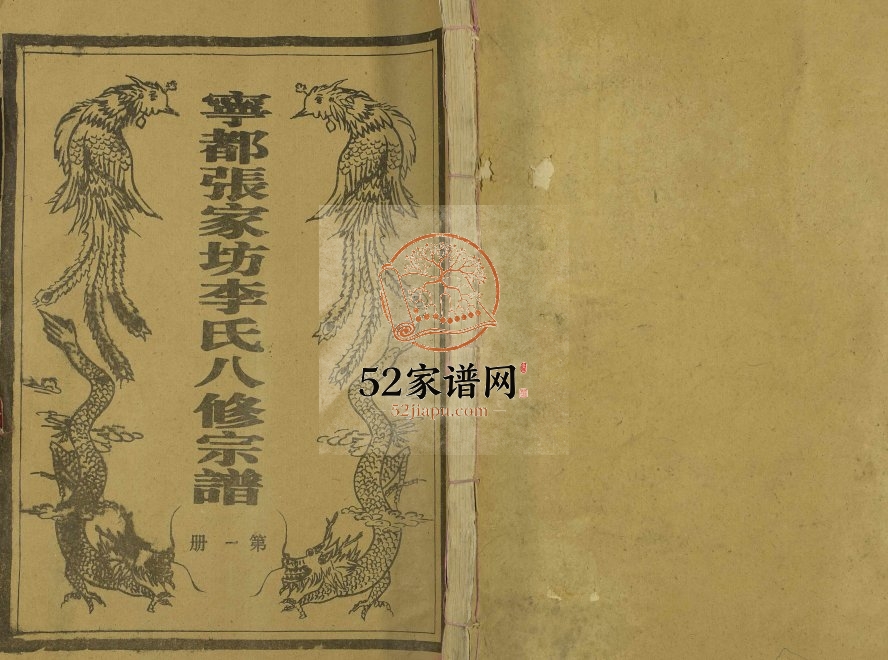 寧都張家坊李氏八修宗譜
第一册
52家谱网
52jiapu.com